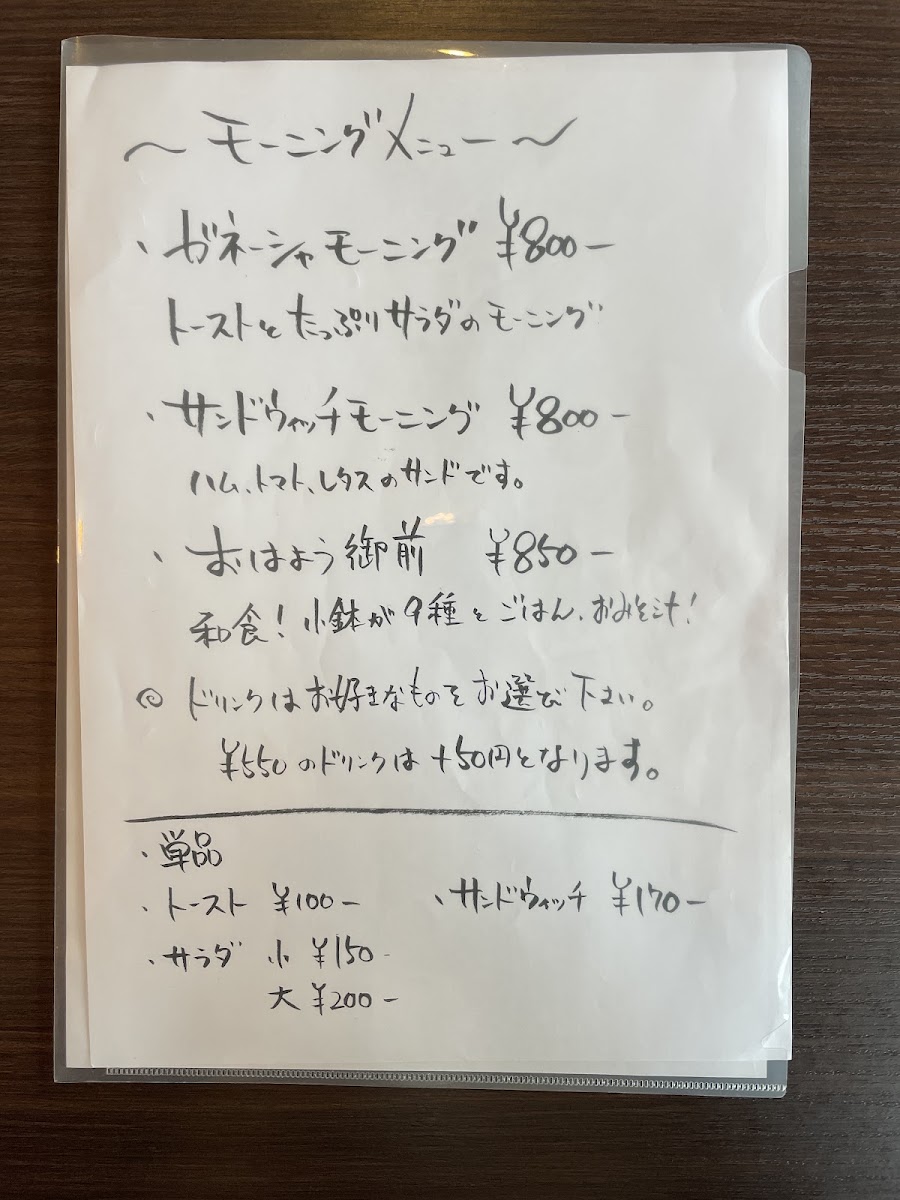 ～モーニングメニュー～
・ガネーシャモーニング ¥800－
トーストとたっぷりサラダのモーニング
・サンドウィッチモーニング ¥800－
ハム、トマト、レタスのサンドです。
・おはよう御前 ¥850－
和食！小鉢が9種とごはん、おみそ汁！
◎ ドリンクはお好きなものをお選び下さい。
¥550のドリンクは+50円となります。
・単品
・トースト ¥100－ ・サンドウィッチ ¥170－
・サラダ 小 ¥150－
大 ¥200－